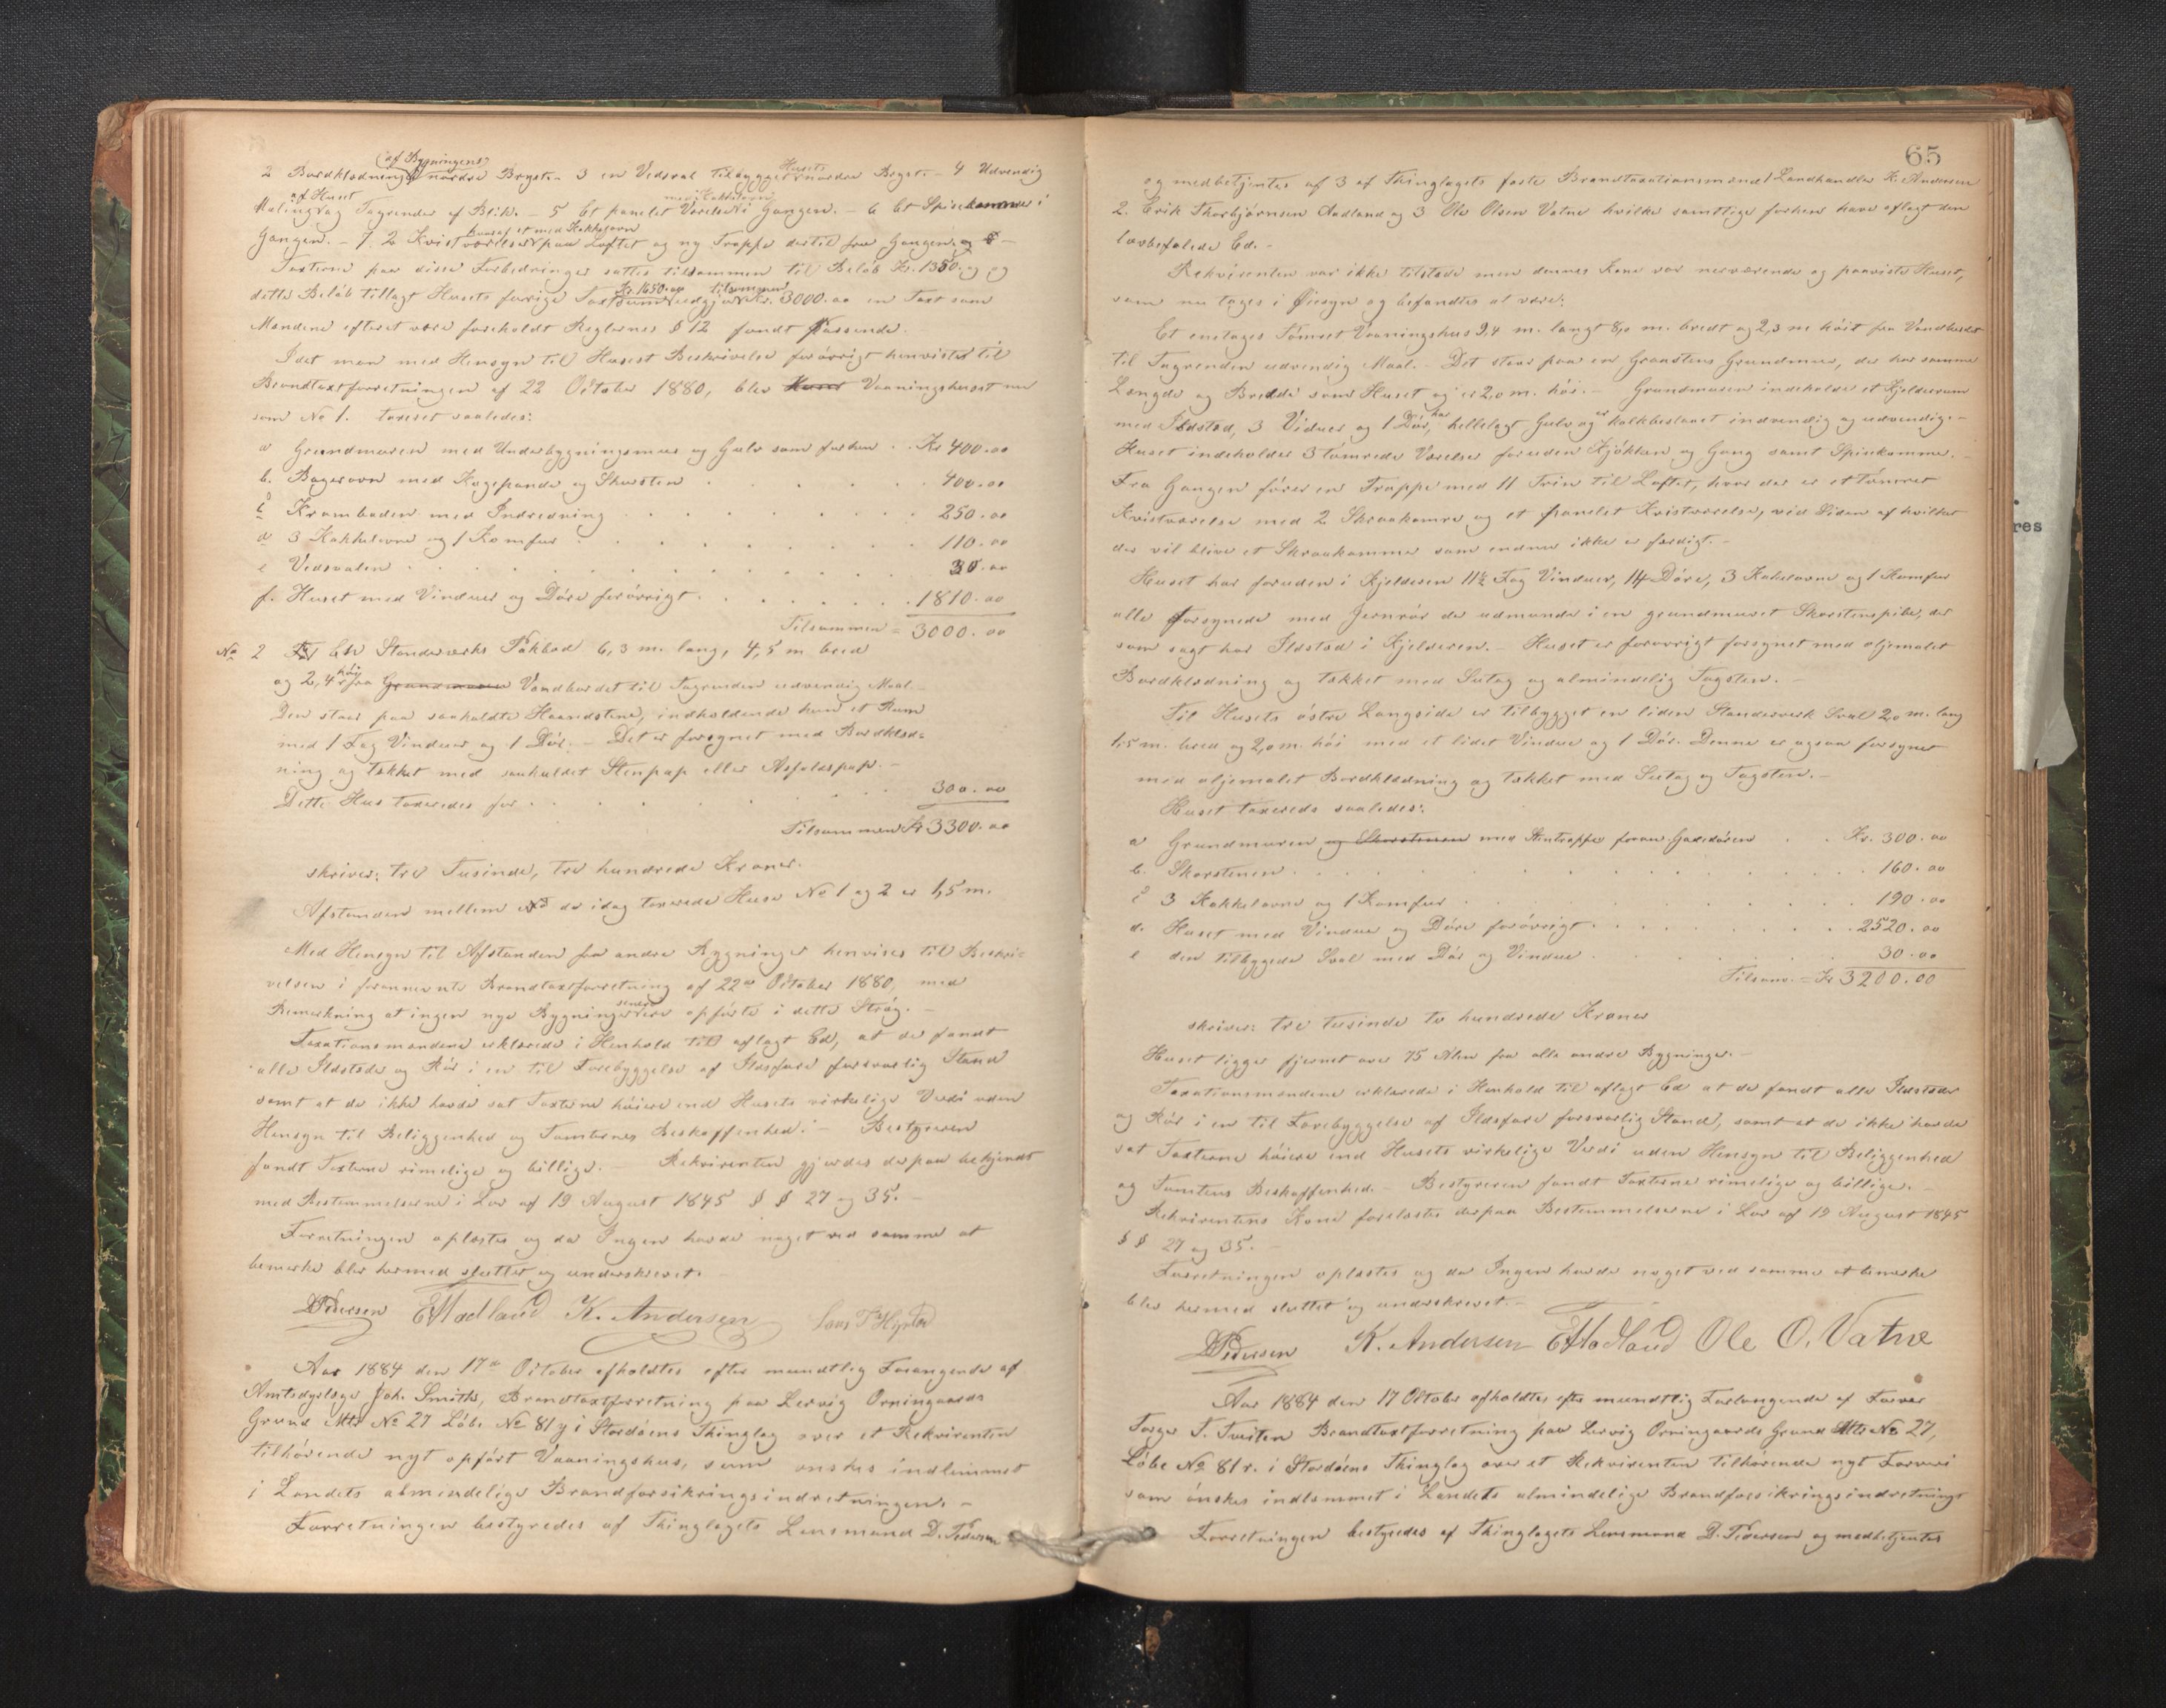 2 Bordklædning af Bygningens nordre Bryst. - 3 en Vedsval tilbygget Husets nordre Bryst. - 4 Udvendig
Maling af Huset og Tagrender af Blik. - 5 Et panelet Værelse med Kakkelovn i Gangen. - 6 Et Spisekammer i
Gangen. - 7. 2 Kvistværelser hvoraf et med Kakkelovn paa Loftet og ny Trappe dertil fra Gangen.
Taxterne paa disse Forbedringer sattes tilsammen til Beløb Kr. 1350. og
dette Beløb tillagt Husets forrige Taxtsum Kr. 1650.00 udgjør tilsammen Kr. 3000.00 en Taxt som
Mændene efterat være foreholdt Reglernes § 12 fandt passende.
Idet man med Hensyn til Husets Beskrivelse forøvrigt henviste til
Brandtaxtforretningen af 22 October 1880, blev Huset Vaaningshuset nu
som No 1. taxeret saaledes:
a Grundmuren med Underbygningsmur og Gulv som forhen . . Kr 400.00
b. Bagerovn med Kogepande og Skorsten . . . . . 400.00
c Krambuden med Indredning . . . . . . . 250.00
d 3 Kakkelovne og 1 Komfur . . . . . . . 110.00
e Vedsvalen . . . . . . . . . . 30.00
f. Huset med Vinduer og Døre forøvrigt . . . . . . 1810.00
Tilsammen = 3000.00
No 2 En Standværks Pakbod 6,3 m. lang, 4,5 m bred
og 2,4 høi fra Grundmuren Vandbordet til Tagrenden udvendig Maal. -
Den staar paa saakaldte Haandstene, indholdende kun et Rum
med 1 Fag Vinduer og 1 Dør. - Det er forsynet med Bordklæd=
ning og tækket med saakaldet Stenpap eller Asfaldspap. -
Dette Hus taxeredes for . . . . . . . . . 300.00
Tilsammen Kr 3300.00
skriver: tre Tusinde, tre hundrede Kroner.
Afstanden mellem de idag taxerede Huse No 1 og 2 er 1,5 m.
Med Hensyn til Afstanden fra andre Bygninger henvises til Beskri=
velsen i forannævnte Brandtaxtforretning af 22de October 1880, med
Bemærkning at ingen nye Bygninger senere ere opførte i dette Strøg. -
Taxationsmændene erklærede i Henhold til aflagt Ed, at de fandt
alle Ildsteder og Rør i en til Forebyggelse af Ildsfare forsvarlig Stand
samt at de ikke havde sat Taxterne høiere end Husets virkelige Værdi uden
Hensyn til Beliggenhed og Tomternes Beskaffenhed. - Bestyreren
fandt Taxterne rimelige og billige. - Rekvirenten gjordes derpaa bekjendt
med Bestemmelserne i Lov af 19 August 1845 § § 27 og 35. -
Forretningen oplæstes og da Ingen havde noget ved samme at
bemerke blev hermed sluttet og underskrevet. -
D Pedersen EAadland K. Andersen Lars T
Aar 1884 den 17de October afholdtes efter mundtlig Forlangende af
Amtsdyrlæge Joh. Smith, Brandtaxtforretning paa Lervig Orningaards
Grund Mtr No 27 Løbe No 81 y i Stordøens Thinglag over et Rekvirenten
tilhørende nyt opført Vaaningshus, som ønskes indlemmet
i Landets almindelige Brandforsikringsindretningen. -
Forretningen bestyredes af Thinglagets Lensmand D. Pedersen
65
og medbetjentes af 3 af Thinglagets faste Brandtaxationsmænd 1 Landhandler K. Andersen
2. Erik Thorbjørnsen Aadland og 3 Ole Olsen Vatne hvilke samtlige forhen have aflagt den
lovbefalede Ed. -
Rekvirenten var ikke tilstede men dennes Kone var nærværende og paaviste Huset,
som nu tages i Øiesyn og befandtes at være:
Et enetages Tømret Vaaningshus 9,4 m. langt 8,0 m. bredt og 2,3 m høit fra Vandbordet
til Tagrenden udvendig Maal. - Det staar paa en Graastens Grundmur, der har samme
Længde og Bredde som Huset og er 2,0 m. høi. - Grundmuren indeholder et Kjelderrum
med Ildsted, 3 Viduer og 1 Dør, har hellelagt Gulv og er kalkbeslaaet indvendig og udvendig. -
Huset indeholder 3 tømrede Værelser foruden Kjøkken og Gang samt Spisekammer. -
Fra Gangen fører en Trappe med 11 Trin til Loftet, hvor der er et tømret
Kvistværelse med 2 Skraakamre og et panelet Kvistværelse, ved Siden af hvilket
der vil blive et Skraakammer som endnu ikke er færdigt. -
Huset har foruden i Kjelderen 11½ Fag Vinduer, 14 Døre, 3 Kakelovne og 1 Komfur
alle forsynede med Jernrør der udmunde i en grundmuret Skorstenspibe, der
som sagt har Ildsted i Kjelderen. - Huset er forøvrigt forsynet med oljemalet
Bordklædning og tækket med Sutag og almindelig Tagsten. -
Til Husets østre Langside er tilbygget en liden Standerverk Sval 2,0 m. lang
1,5 m. bred og 2,0 m. høi med et lidet Vindue og 1 Dør. Denne er ogsaa forsynet
med oljemalet Bordklædning og tækket med Sutag og Tagsten. -
Huset taxereds saaledes:
a Grundmuren og Skorstenen med Stentrappe foran Gadedøren . . Kr. 300.00
b. Skorstenen . . . . . . . . . . . . 160.00
c 3 Kakkelovne og 1 Komfur . . . . . . . . 190.00
d. Huset med Vinduer og Døre forøvrigt . . . . . . . 2520.00
e den tilbyggede Sval med Dør og Vindue . . . . . . 30.00
Tilsam. = Kr 3200.00
skriver: tre tusinde to hundrede Kroner
Huset ligger fjernet over 75 Alen fra alle andre Bygninger. -
Taxationsmændene erklærede i Henhold til aflagt Ed at de fandt alle Ildsteder
og Rør i en til Forebyggelse af Ildsfare forsvarlig Stand, samt at de ikke havde
sat Taxterne høiere end Husets virkelige Værdi uden Hensyn til Beliggenhed
og Tomtens Beskaffenhed. - Bestyreren fandt Taxterne rimelige og billige. -
Rekvirentens Kone forelæstes derpaa Bestemmelserne i Lov af 19 August 1845
§ § 27 og 35. -
Forretningen oplæstes og da Ingen havde noget ved samme at bemerke
blev hermed sluttet og underskrevet. -
D Pedersen K. Andersen EAadland Ole O. Vatne
Aar 1884 den 17 Oktober afholdtes efter mundtlig Forlangende af Farver
Torger T. Tveiten Brandtaxtforretning paa Lervig Orningaards Grund Mtr No 27,
Løbe No 81 r. i Stordøens Thinglag over et Rekvirenten tilhørende nyt Farveri
som ønskes indlemmet i Landets almindelige Brandforsikringsindretning.
Forretningen bestyredes af Thinglagets Lensmand D. Pedersen og medbetjentes
res